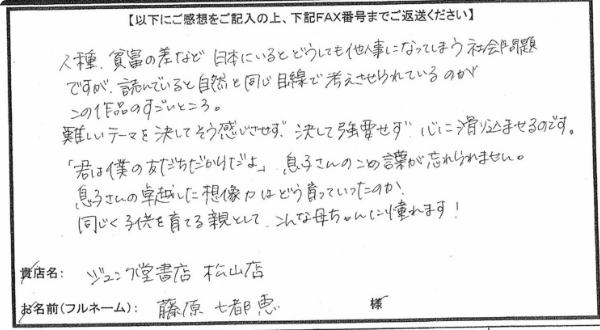 【以下にご感想をご記入の上、下記FAX番号までご返送ください】
人種、貧富の差など 日本にいるとどうしても他人事になってしまう 社会問題
ですが、読んでいると自然と同じ目線で考えさせられているのが
この作品のすごいところ。
難しいテーマを決してそう感じさせず、決して強要せず 心に滑り込ませるのです。
「君は僕の友だちだからだよ」 息子さんのこの言葉が忘れられません。
息子さんの卓越した想像力はどう育っていったのか、
同じく子供を育てる親として、こんな母ちゃんに憧れます！
貴店名： ジュンク堂書店 松山店
お名前（フルネーム）： 藤原 七都恵 様